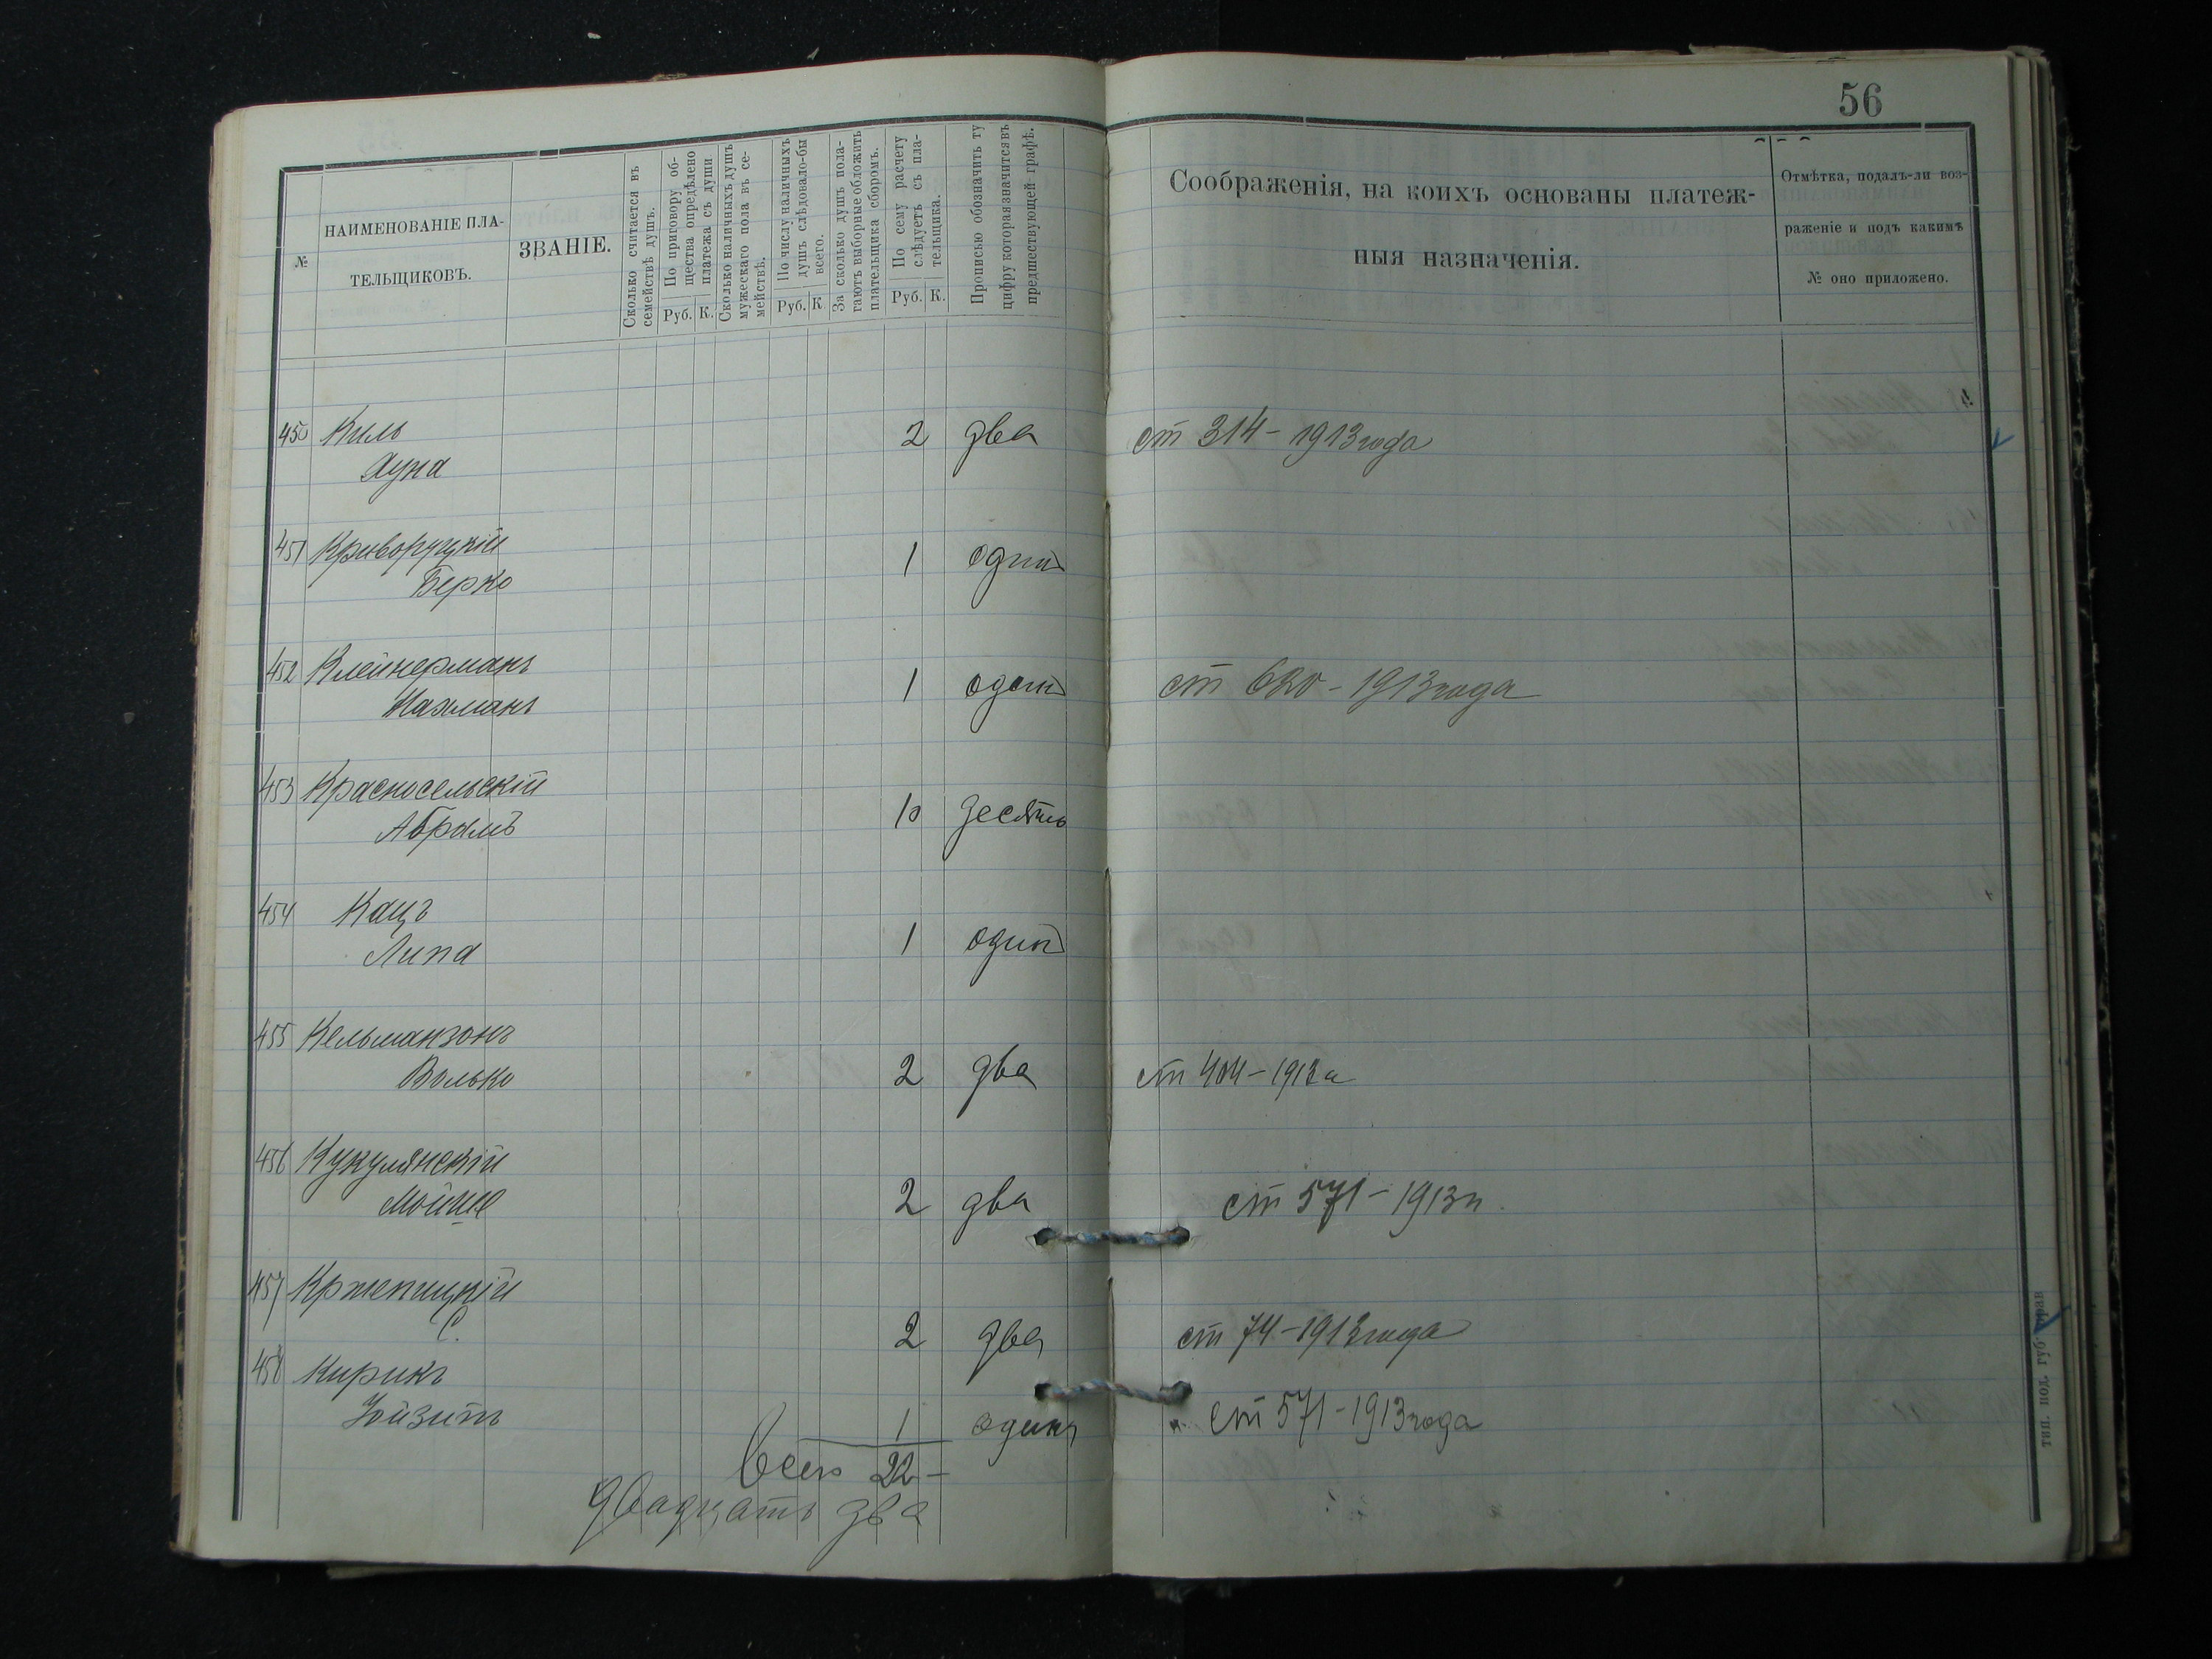 56
№
НАИМЕНОВАНІЕ ПЛА-
ТЕЛЬЩИКОВЪ.
ЗВАНІЕ.
Сколько считается въ
семействѣ душъ.
По приговору об-
щества опредѣлено
платежа съ души.
Руб. К.
Сколько наличныхъ душъ
мужескаго пола въ се-
мействѣ.
По числу наличныхъ
душъ слѣдовало-бы
всего.
Руб. К.
За сколько душъ пола-
гаютъ выборные обложить
плательщика сборомъ.
По сему расчету
слѣдуетъ съ пла-
тельщика.
Руб. К.
Прописью обозначить ту
цифру которая значится въ
предшествующей графѣ.
Соображенія, на коихъ основаны платеж-
ныя назначенія.
Отмѣтка, подалъ-ли воз-
раженіе и подъ какимъ
№ оно приложено.
450 Киль 2 два ст 314 - 1913 года
Хуна
451 Криворуцкій 1 один
Берко
452 Клейнерманъ 1 один ст 620 - 1913 года
Нахманъ
453 Красносельскій
Абрамъ 10 десять
454 Кацъ
Липа 1 один
455 Кельманзонъ
Волько 2 два ст 404 - 1913 г
456 Кукулянскій
Мойше 2 два ст 571 - 1913 г.
457 Кржепицкій
С. 2 два ст 74 - 1913 года
458 Кирикъ
1 одинъ ст 571 - 1913 года
Всего 22 -
двадцать два
тип. под. губ. прав